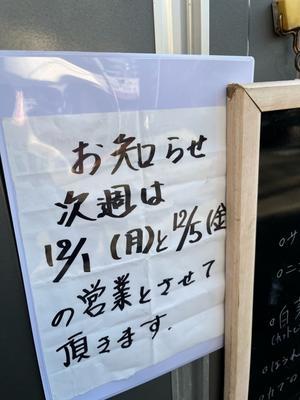 お知らせ
次週は
12/1(月)と12/5(金)
の営業とさせて
頂きます.